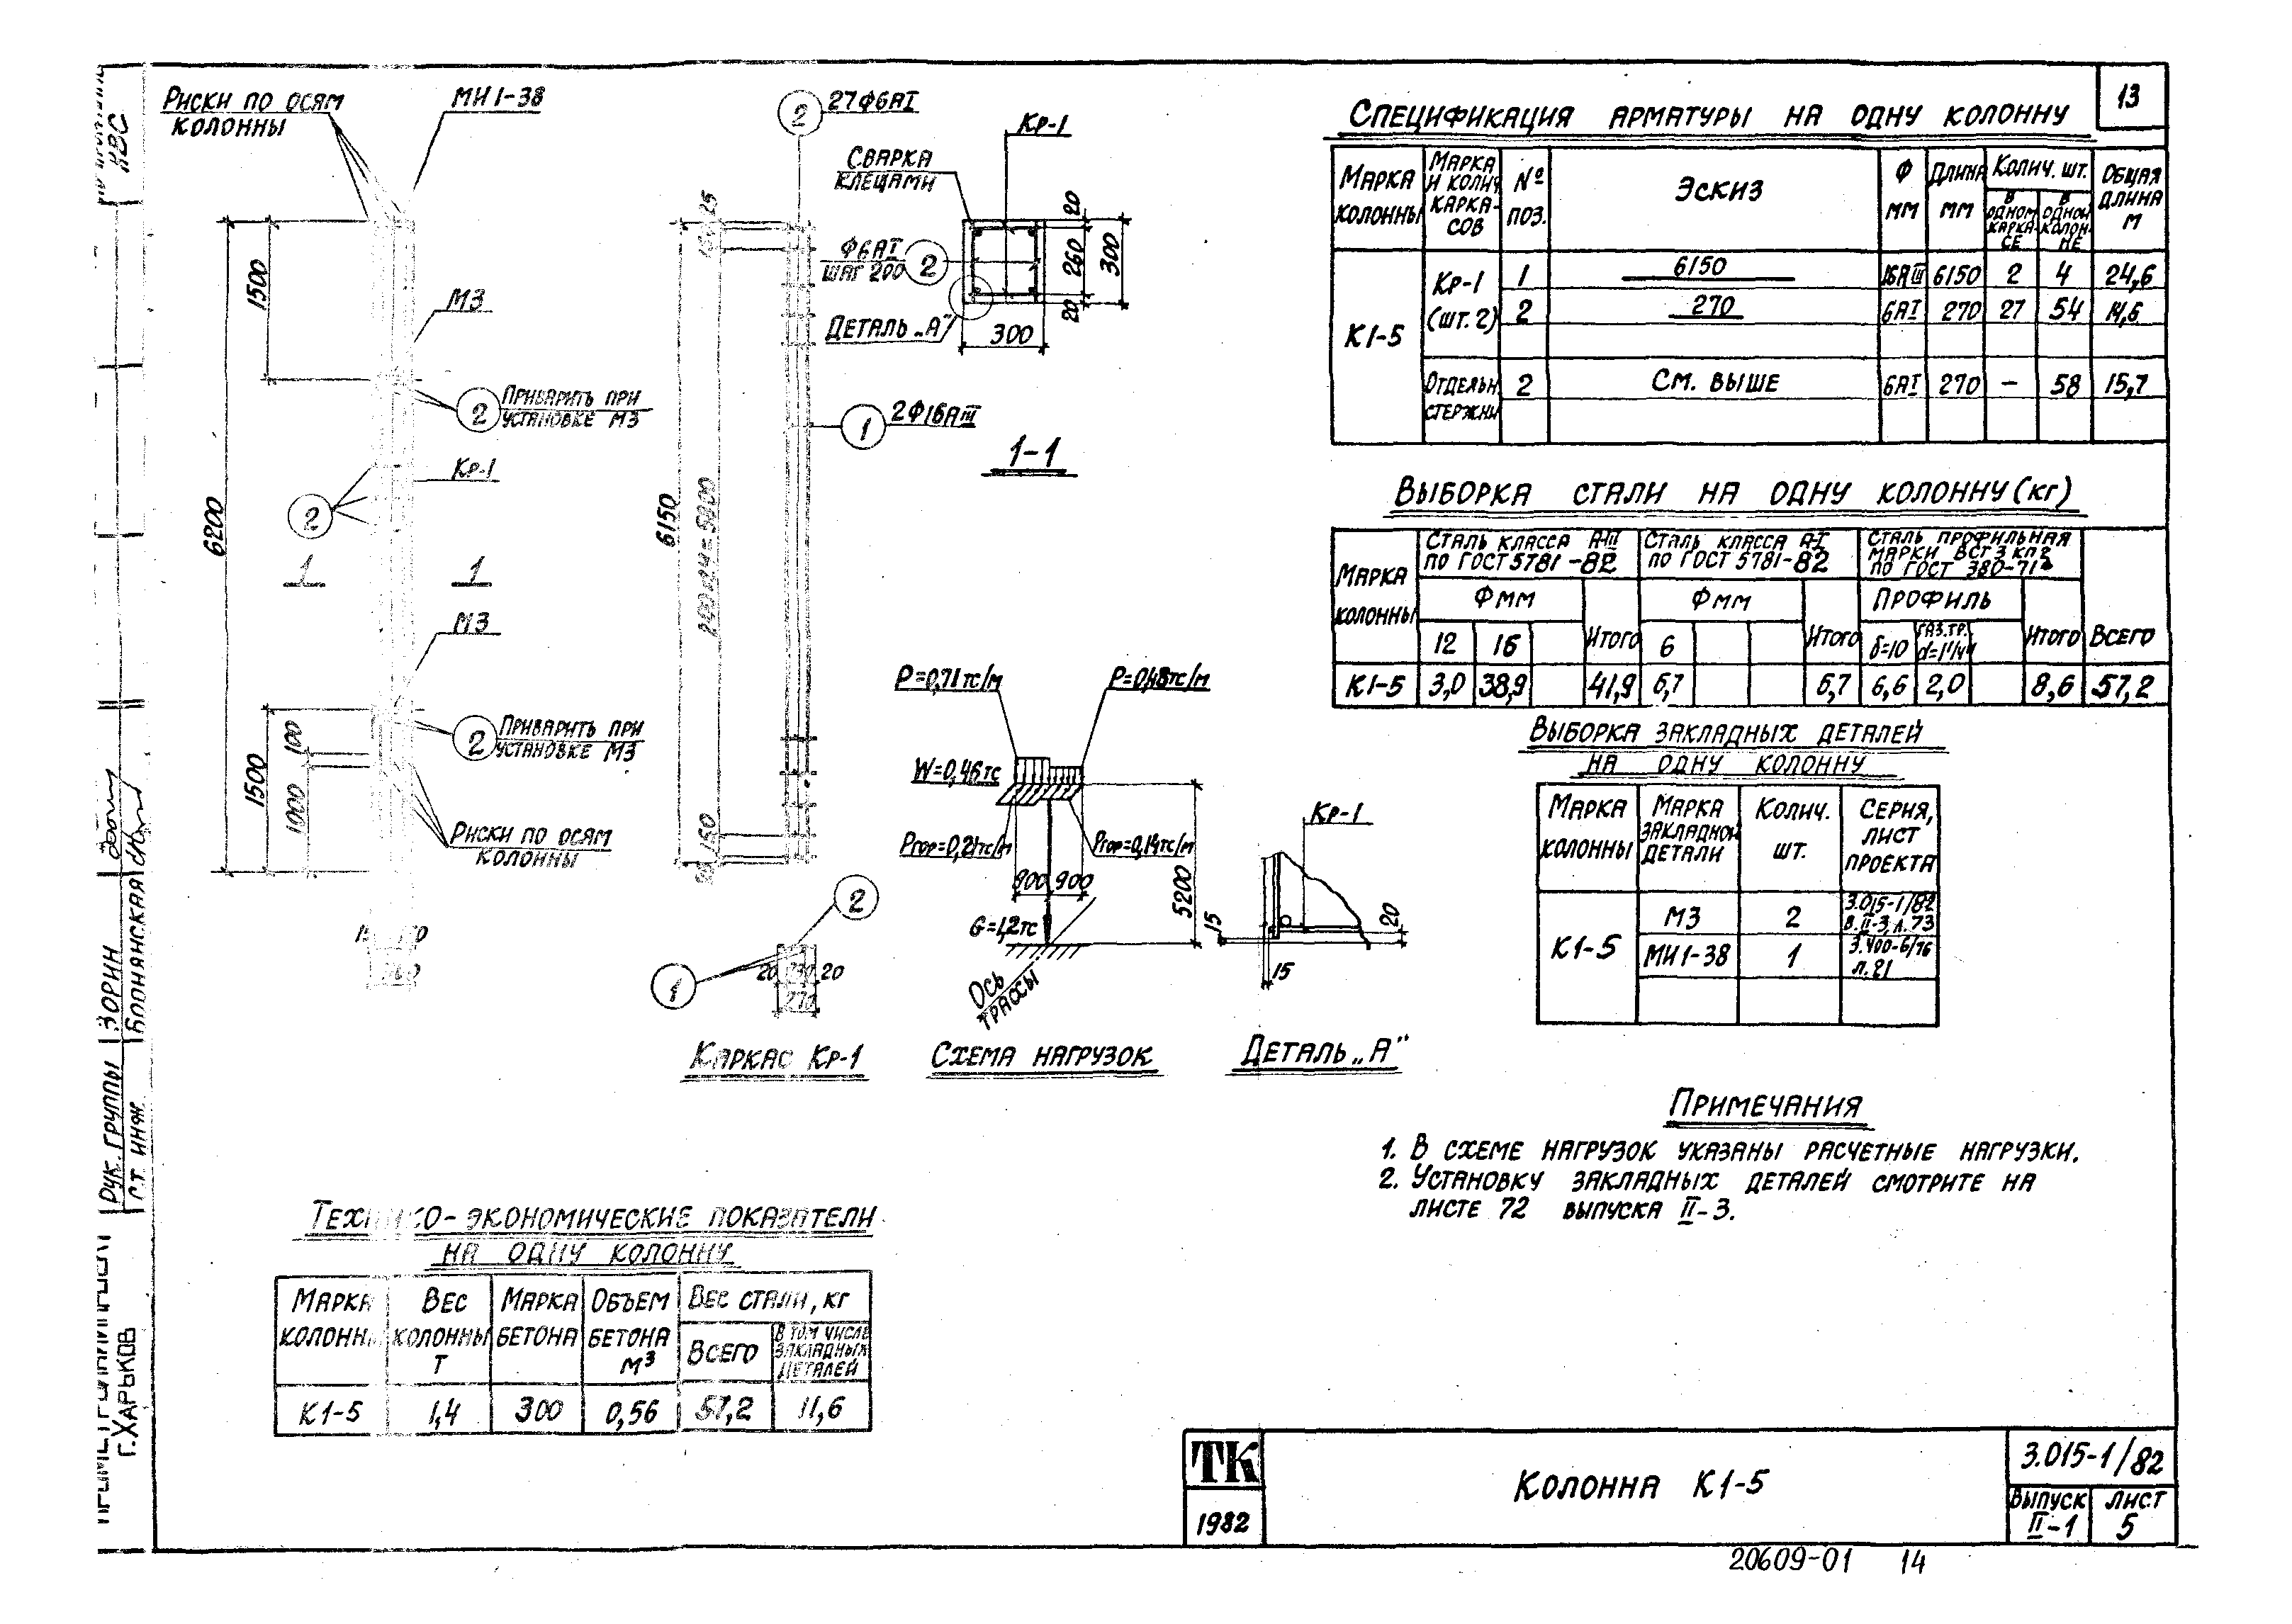 13
Риски по осям
колонны
МИ1-38
1500
М3
2
Приварить при
установке М3
Кр-1
6200
2
1
1
М3
2
Приварить при
установке М3
1500
100
1000
Риски по осям
колонны
2
27Ф6АI
25
6150
200х24=
150
1
2Ф16АIII
2
1
20
20
270
Каркас Кр-1
Кр-1
Сварка
клещами
Ф6АI
шаг 200
2
Деталь „А"
300
20
260
20
300
1-1
P=0,71тс/м
P=0,48тс/м
W=0,46тс
Pгор=0,21тс/м
Pгор=0,14тс/м
900
900
G=1,2тс
5200
Ось
трассы
Схема нагрузок
Кр-1
15
20
15
Деталь „А"
Спецификация арматуры на одну колонну
Марка колонны
Марка и колич. каркасов
№ поз.
Эскиз
Ф мм
Длина мм
Колич. шт.
в одном каркасе
в одной колонне
Общая длина м
К1-5
Кр-1 (шт.2)
1 6150 16АIII 6150 2 4 24,6
2 270 6АI 270 27 54 14,6
Отдельн. стержни
2 См. выше 6АI 270 – 58 15,7
Выборка стали на одну колонну (кг)
Марка колонны
Сталь класса А-III по ГОСТ 5781-82
Сталь класса А-I по ГОСТ 5781-82
Сталь профильная марки ВСт3кп2 по ГОСТ 380-71
Ф мм
Ф мм
Профиль
12 16 Итого 6 Итого δ=10 Газ.тр. d=1¼" Итого Всего
К1-5 3,0 38,9 41,9 6,7 6,7 6,6 2,0 8,6 57,2
Выборка закладных деталей
на одну колонну
Марка колонны
Марка закладной детали
Колич. шт.
Серия, лист проекта
К1-5
М3 2 3.015-1/82 в.II-3, л.73
МИ1-38 1 3.400-6/76 л.21
Примечания
1. В схеме нагрузок указаны расчетные нагрузки.
2. Установку закладных деталей смотрите на
листе 72 выпуска II-3.
Технико-экономические показатели
на одну колонну
Марка колонны
Вес колонны т
Марка бетона
Объем бетона м³
Вес стали, кг
Всего
В том числе закладных деталей
К1-5 1,4 300 0,56 57,2 11,6
ТК
1982
Колонна К1-5
3.015-1/82
Выпуск II-1
Лист 5
20609-01 14
Рук. группы Зорин
Ст. инж.
г. Харьков